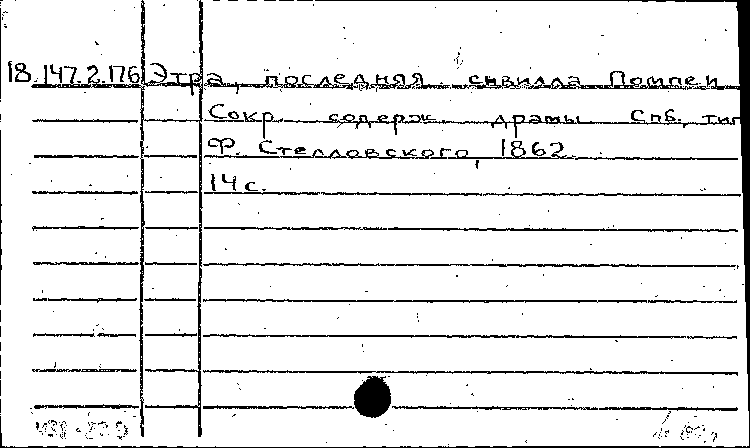 18.147.2.176 Этра, последняя сивилла Помпеи
Сокр. содерж. драмы Спб., тип
Ф. Стелловского, 1862
14 с.